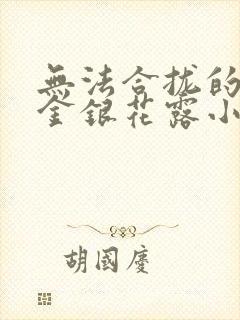 無法合拢的
金銀花露小
胡國慶